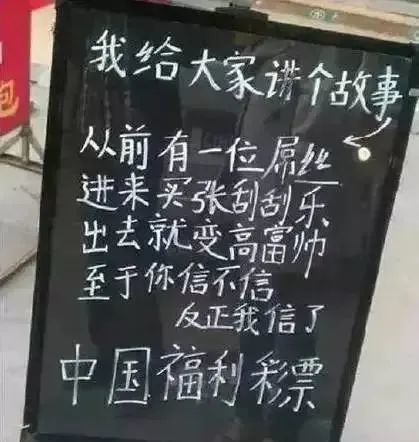 我给大家讲个故事
从前有一位屌丝
进来买张刮刮乐
出去就变高富帅
至于你信不信
反正我信了
中国福利彩票
包